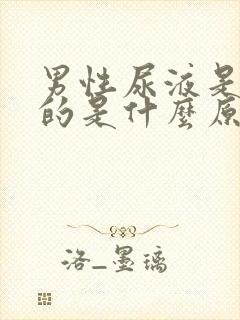 男性尿液是
的是什麼原
洛_墨璃